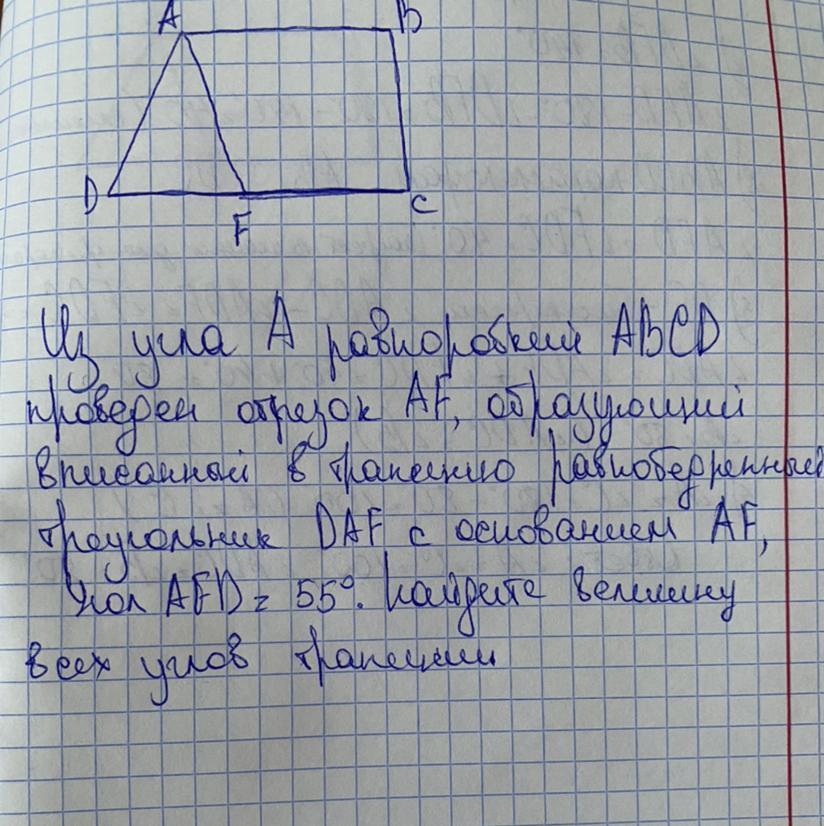 A B
D F C
Из угла A равноробкий ABCD
проведен отрезок AF, образующий
вписанный в трапецию равнобедренный
треугольник DAF с основанием AF,
угол AFD = 55°. Найдите величину
всех углов трапеции